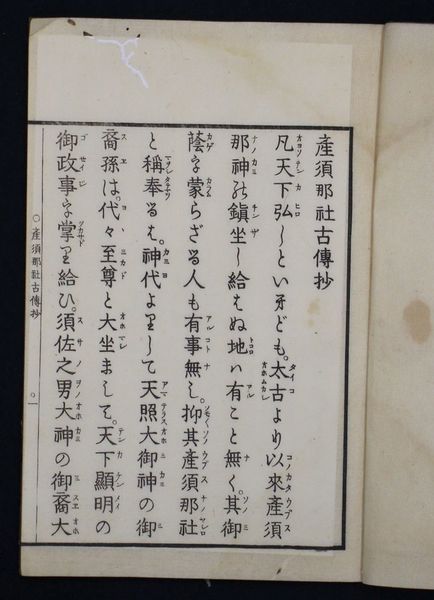 産須那社古傳抄
凡天下弘しといへども。太古より以來産須
那神の鎭坐し給はぬ地ハ有こと無く。其御
蔭を蒙らざる人も有事無し。抑其産須那社
と稱奉るは。神代よりして天照大御神の御
裔孫は。代々至尊と大坐まして。天下顯明の
御政事を掌り給ひ。須佐之男大神の御裔大
○産須那社古傳抄
○一